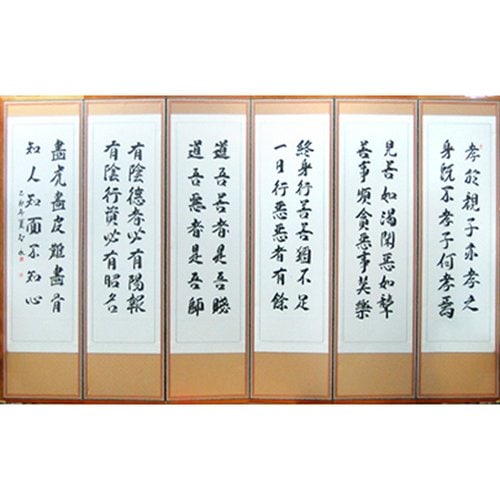 孝於親子亦孝之
身既不孝子何孝焉
見善如渴聞惡如聾
善事須貪惡事莫樂
終身行善善猶不足
一日行惡惡有餘
道吾善者是吾賊
道吾惡者是吾師
有陰德者必有陽報
有陰行必有昭名
畵虎畵皮難畵骨
知人知面不知心
己卯年夏